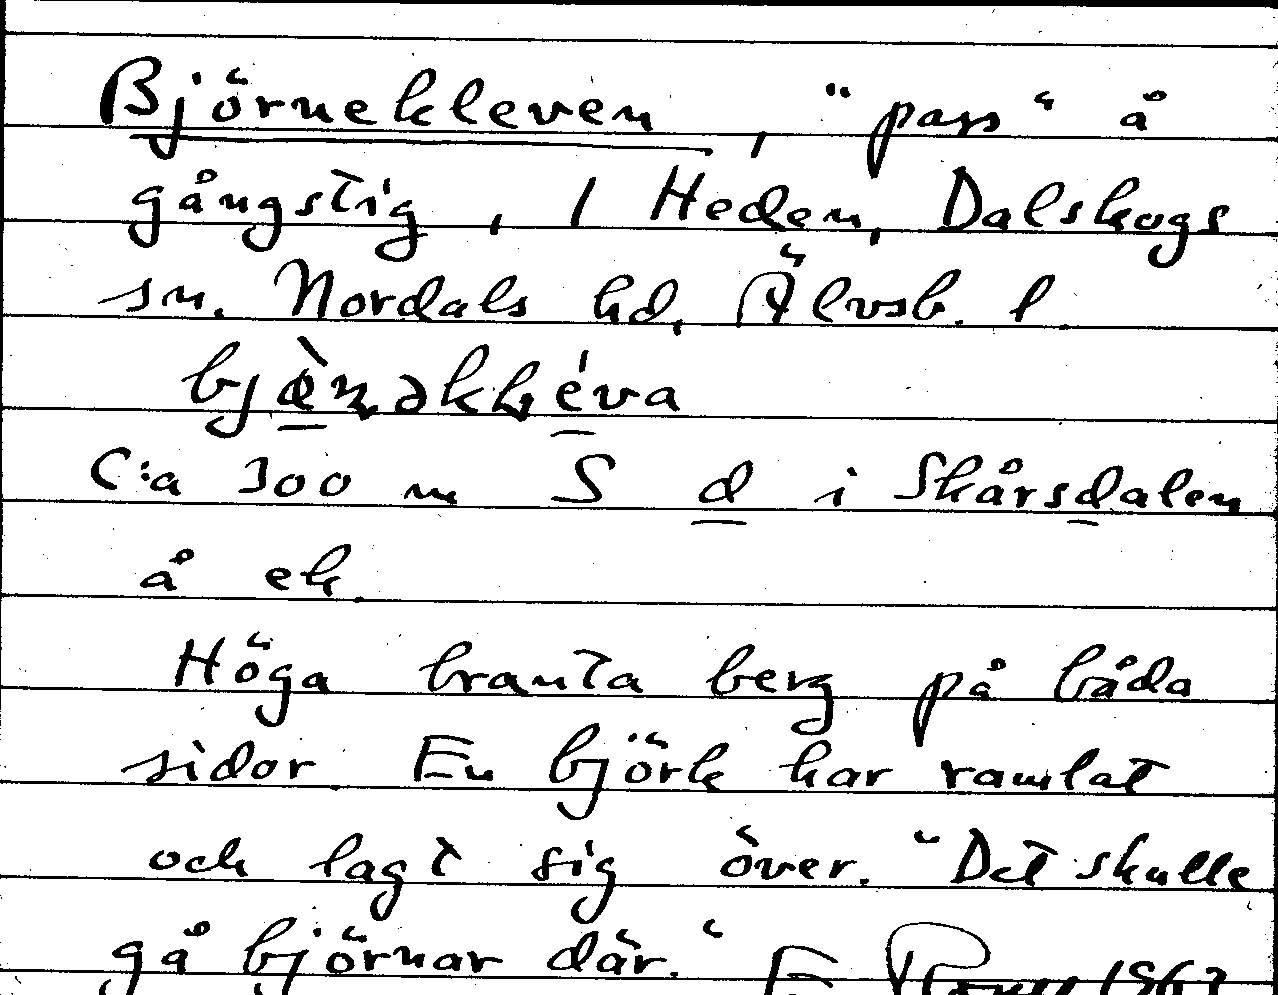 Björnekleven, "pass" å
gångstig, 1 Heden, Dalskogs
sn. Nordals hd, Älvsb. l.
C:a 300 m S d i Skårsdalen
å ek.
Höga branta berg på båda
sidor. En björk har ramlat
och lagt sig över. "Det skulle
gå björnar där."